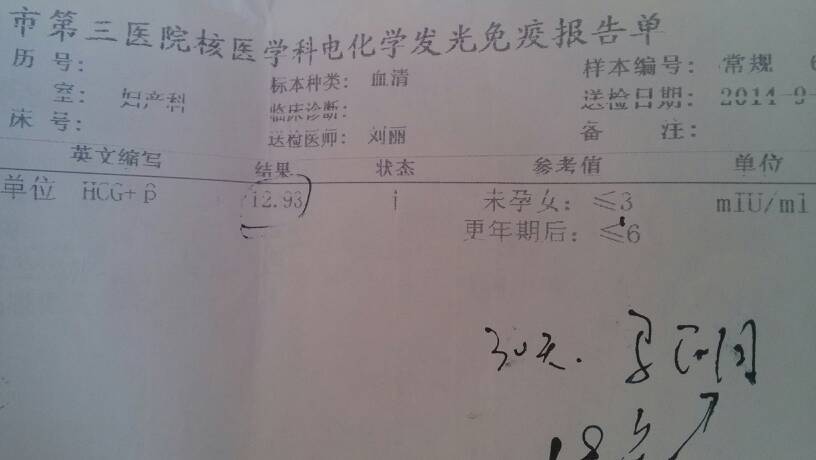 市第三医院核医学科电化学发光免疫报告单
历号： 标本种类： 血清 样本编号： 常规 6
室： 妇产科 临床诊断： 送检日期： 2014-9-
床号： 送检医师： 刘丽 备 注：
英文缩写 结果 状态 参考值 单位
单位 HCG+β 12.93 ↑ 未孕女：≤3 mIU/ml
更年期后：≤6
30天.